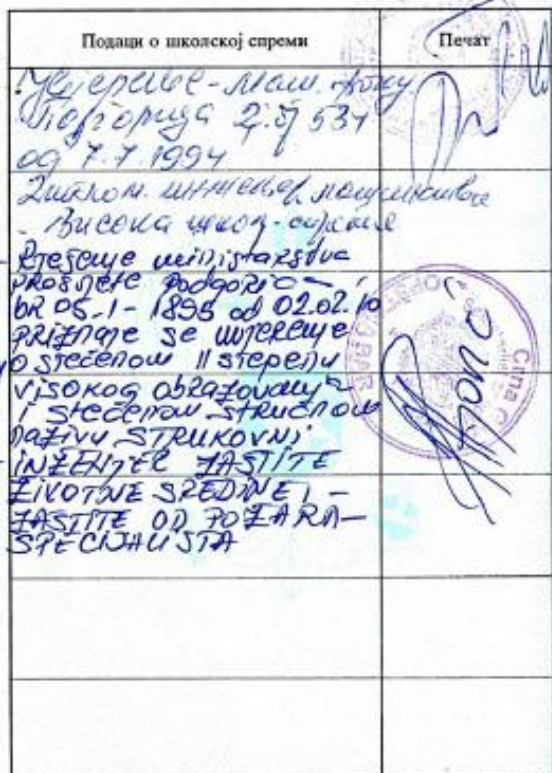 Подаци о школској спреми
Печат
Увјерење - маш. фак.
Подгорица 534
од 7.7.1994
Диплом. инжењер машинства
- Висока школ. спрема
Rješenje ministarstva
prosvjete Podgorica -
br 05.1-1895 od 02.02.10
priznaje se uvjerenje
o stečenom II stepenu
visokog obrazovanja
i stečenom stručnom
nazivu STRUKOVNI
INŽENJER ZAŠTITE
ŽIVOTNE SREDINE I -
ZAŠTITE OD POŽARA -
SPECIJALISTA
Crna
OPŠT
BAR